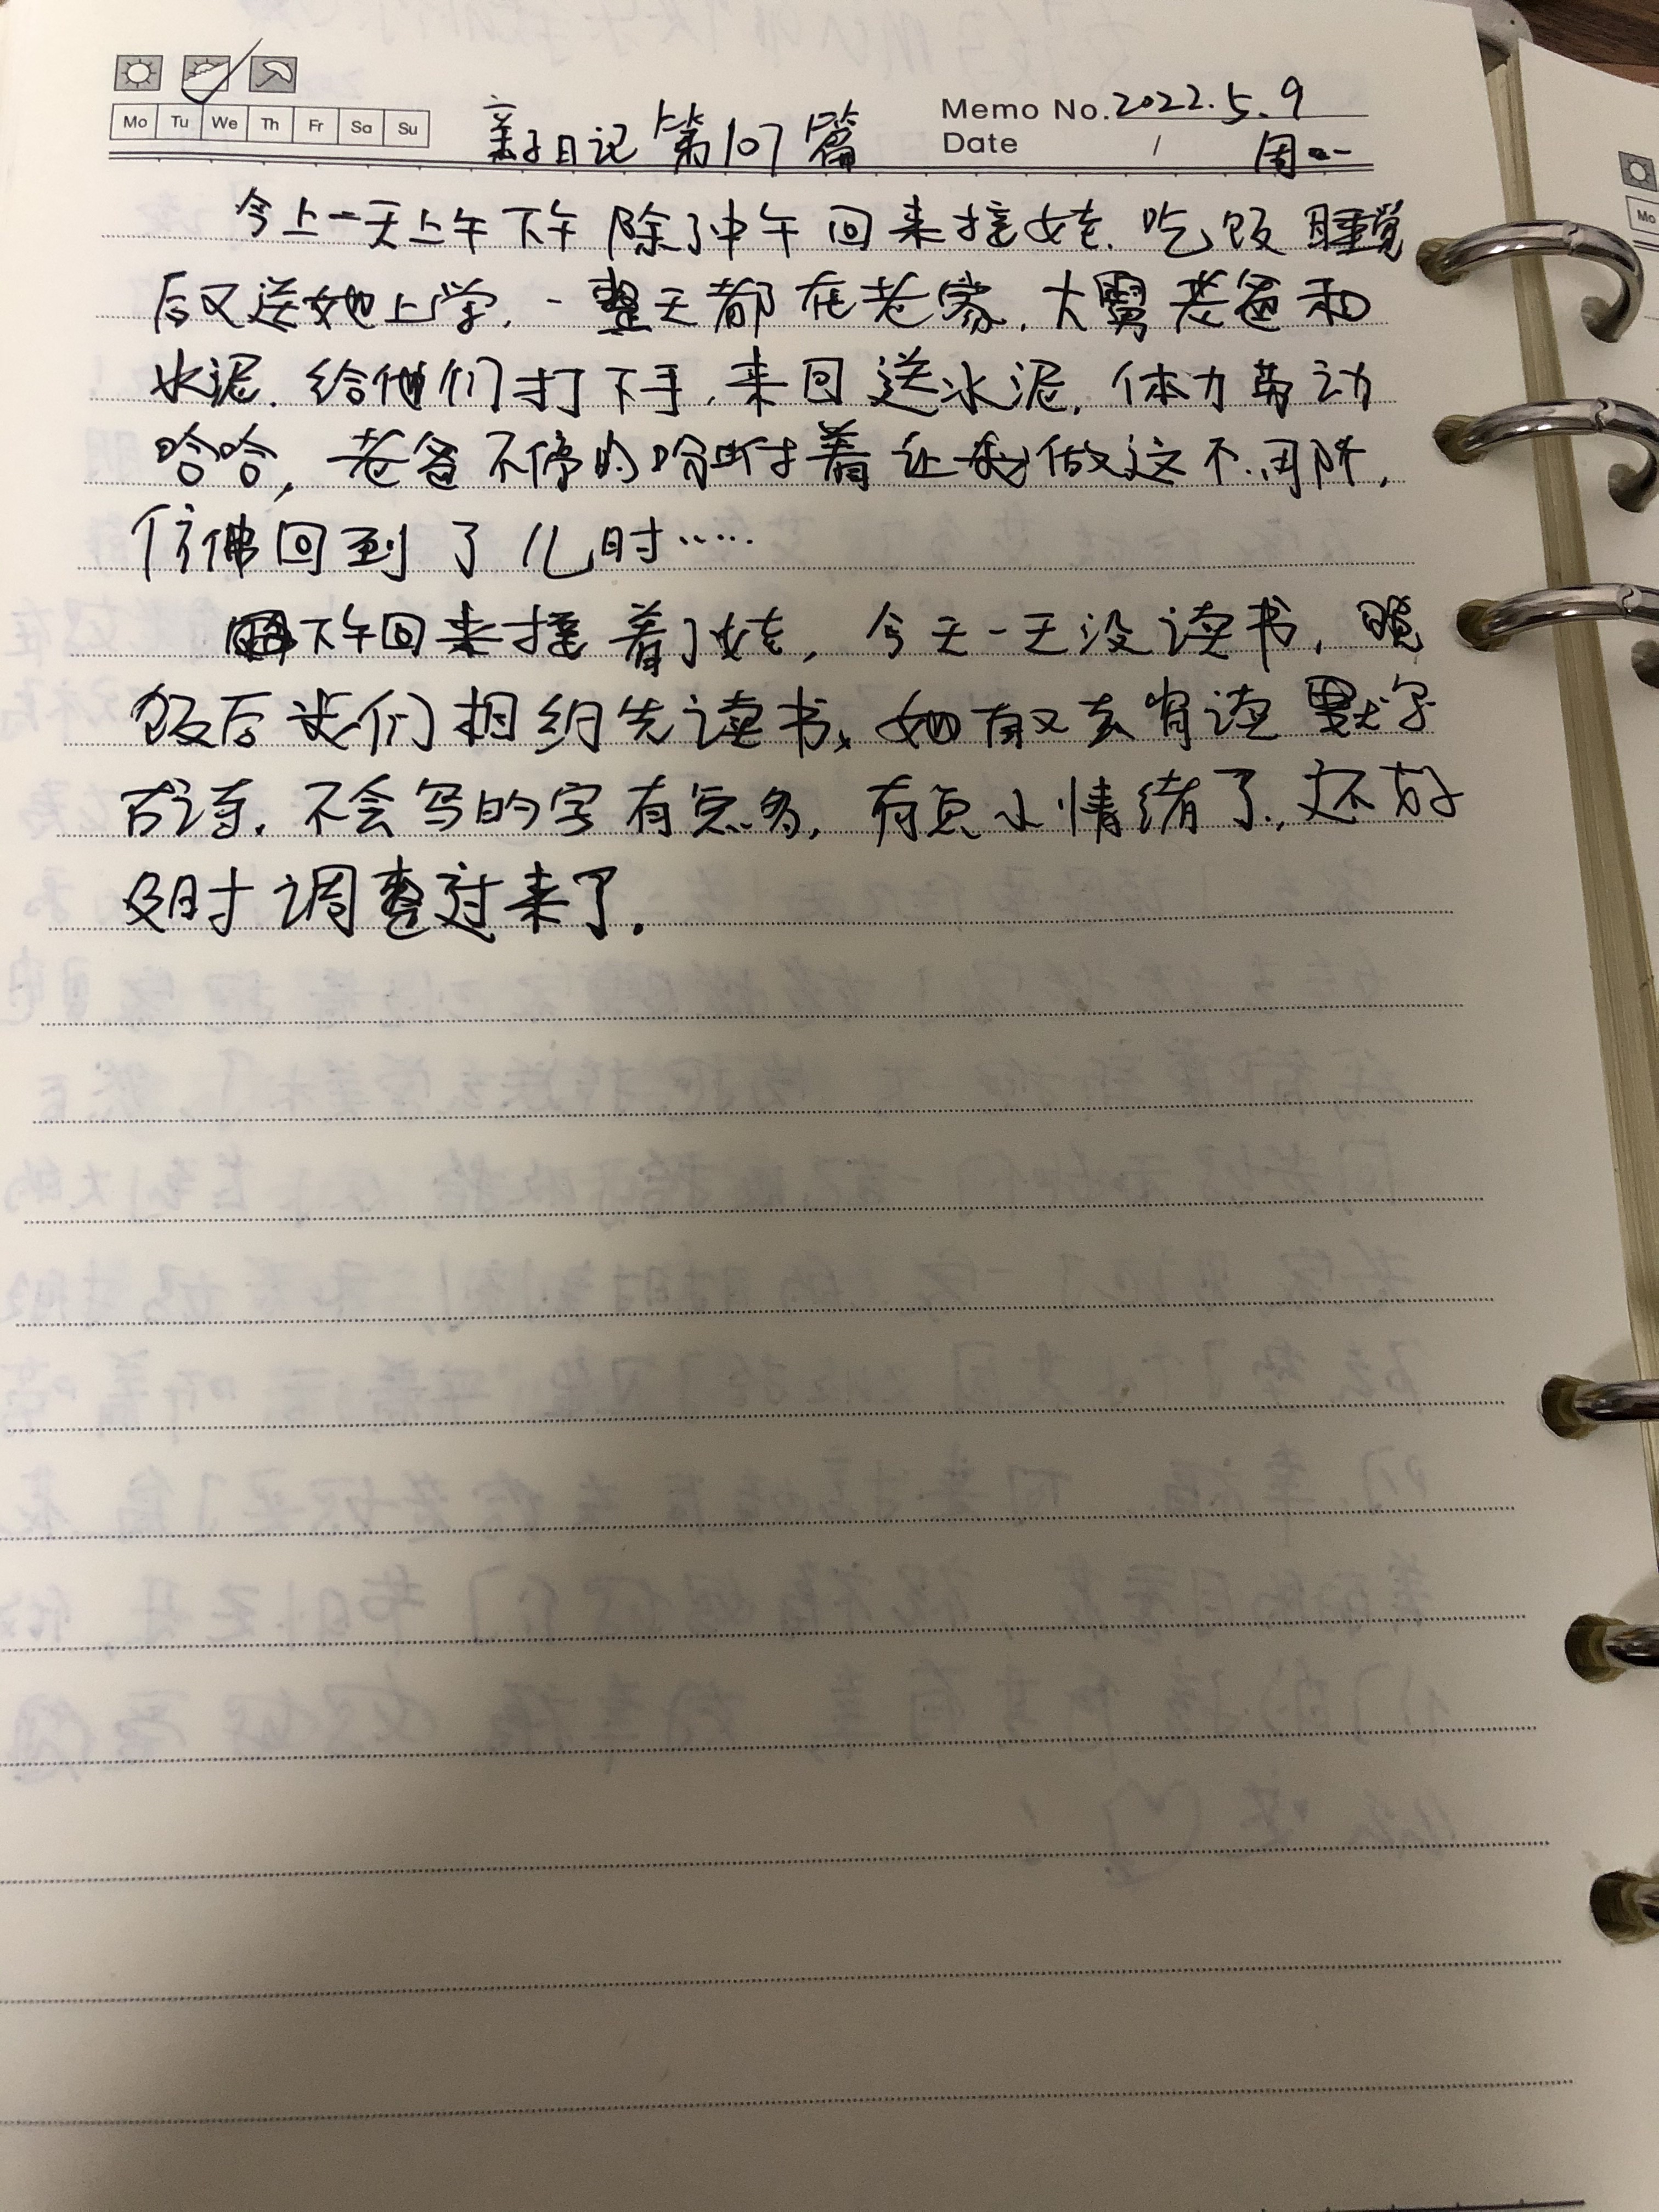 Mo Tu We Th Fr Sa Su
亲子日记 第107篇
Memo No. 2022.5.9
Date / 周一
今上一天上午下午 除了中午回来接娃. 吃饭睡觉
后又送她上学. 一整天都在老家. 大舅老爸和
水泥. 给他们打下手, 来回送水泥. 体力劳动
哈哈, 老爸不停的吩咐着让我做这个.同时,
仿佛回到了儿时……
下午回来接着了娃, 今天一天没读书, 晚
饭后我们相约先读书, 她有又去背读默写
古诗. 不会写的字有点多, 有点小情绪了, 还好
及时调整过来了.
Mo